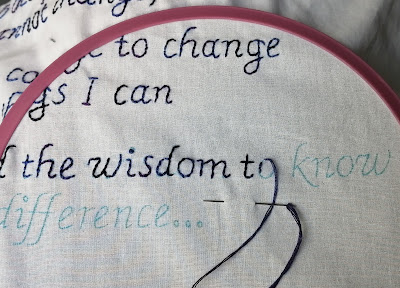 nnot change,
to change
gs I can
d the wisdom to know
difference...